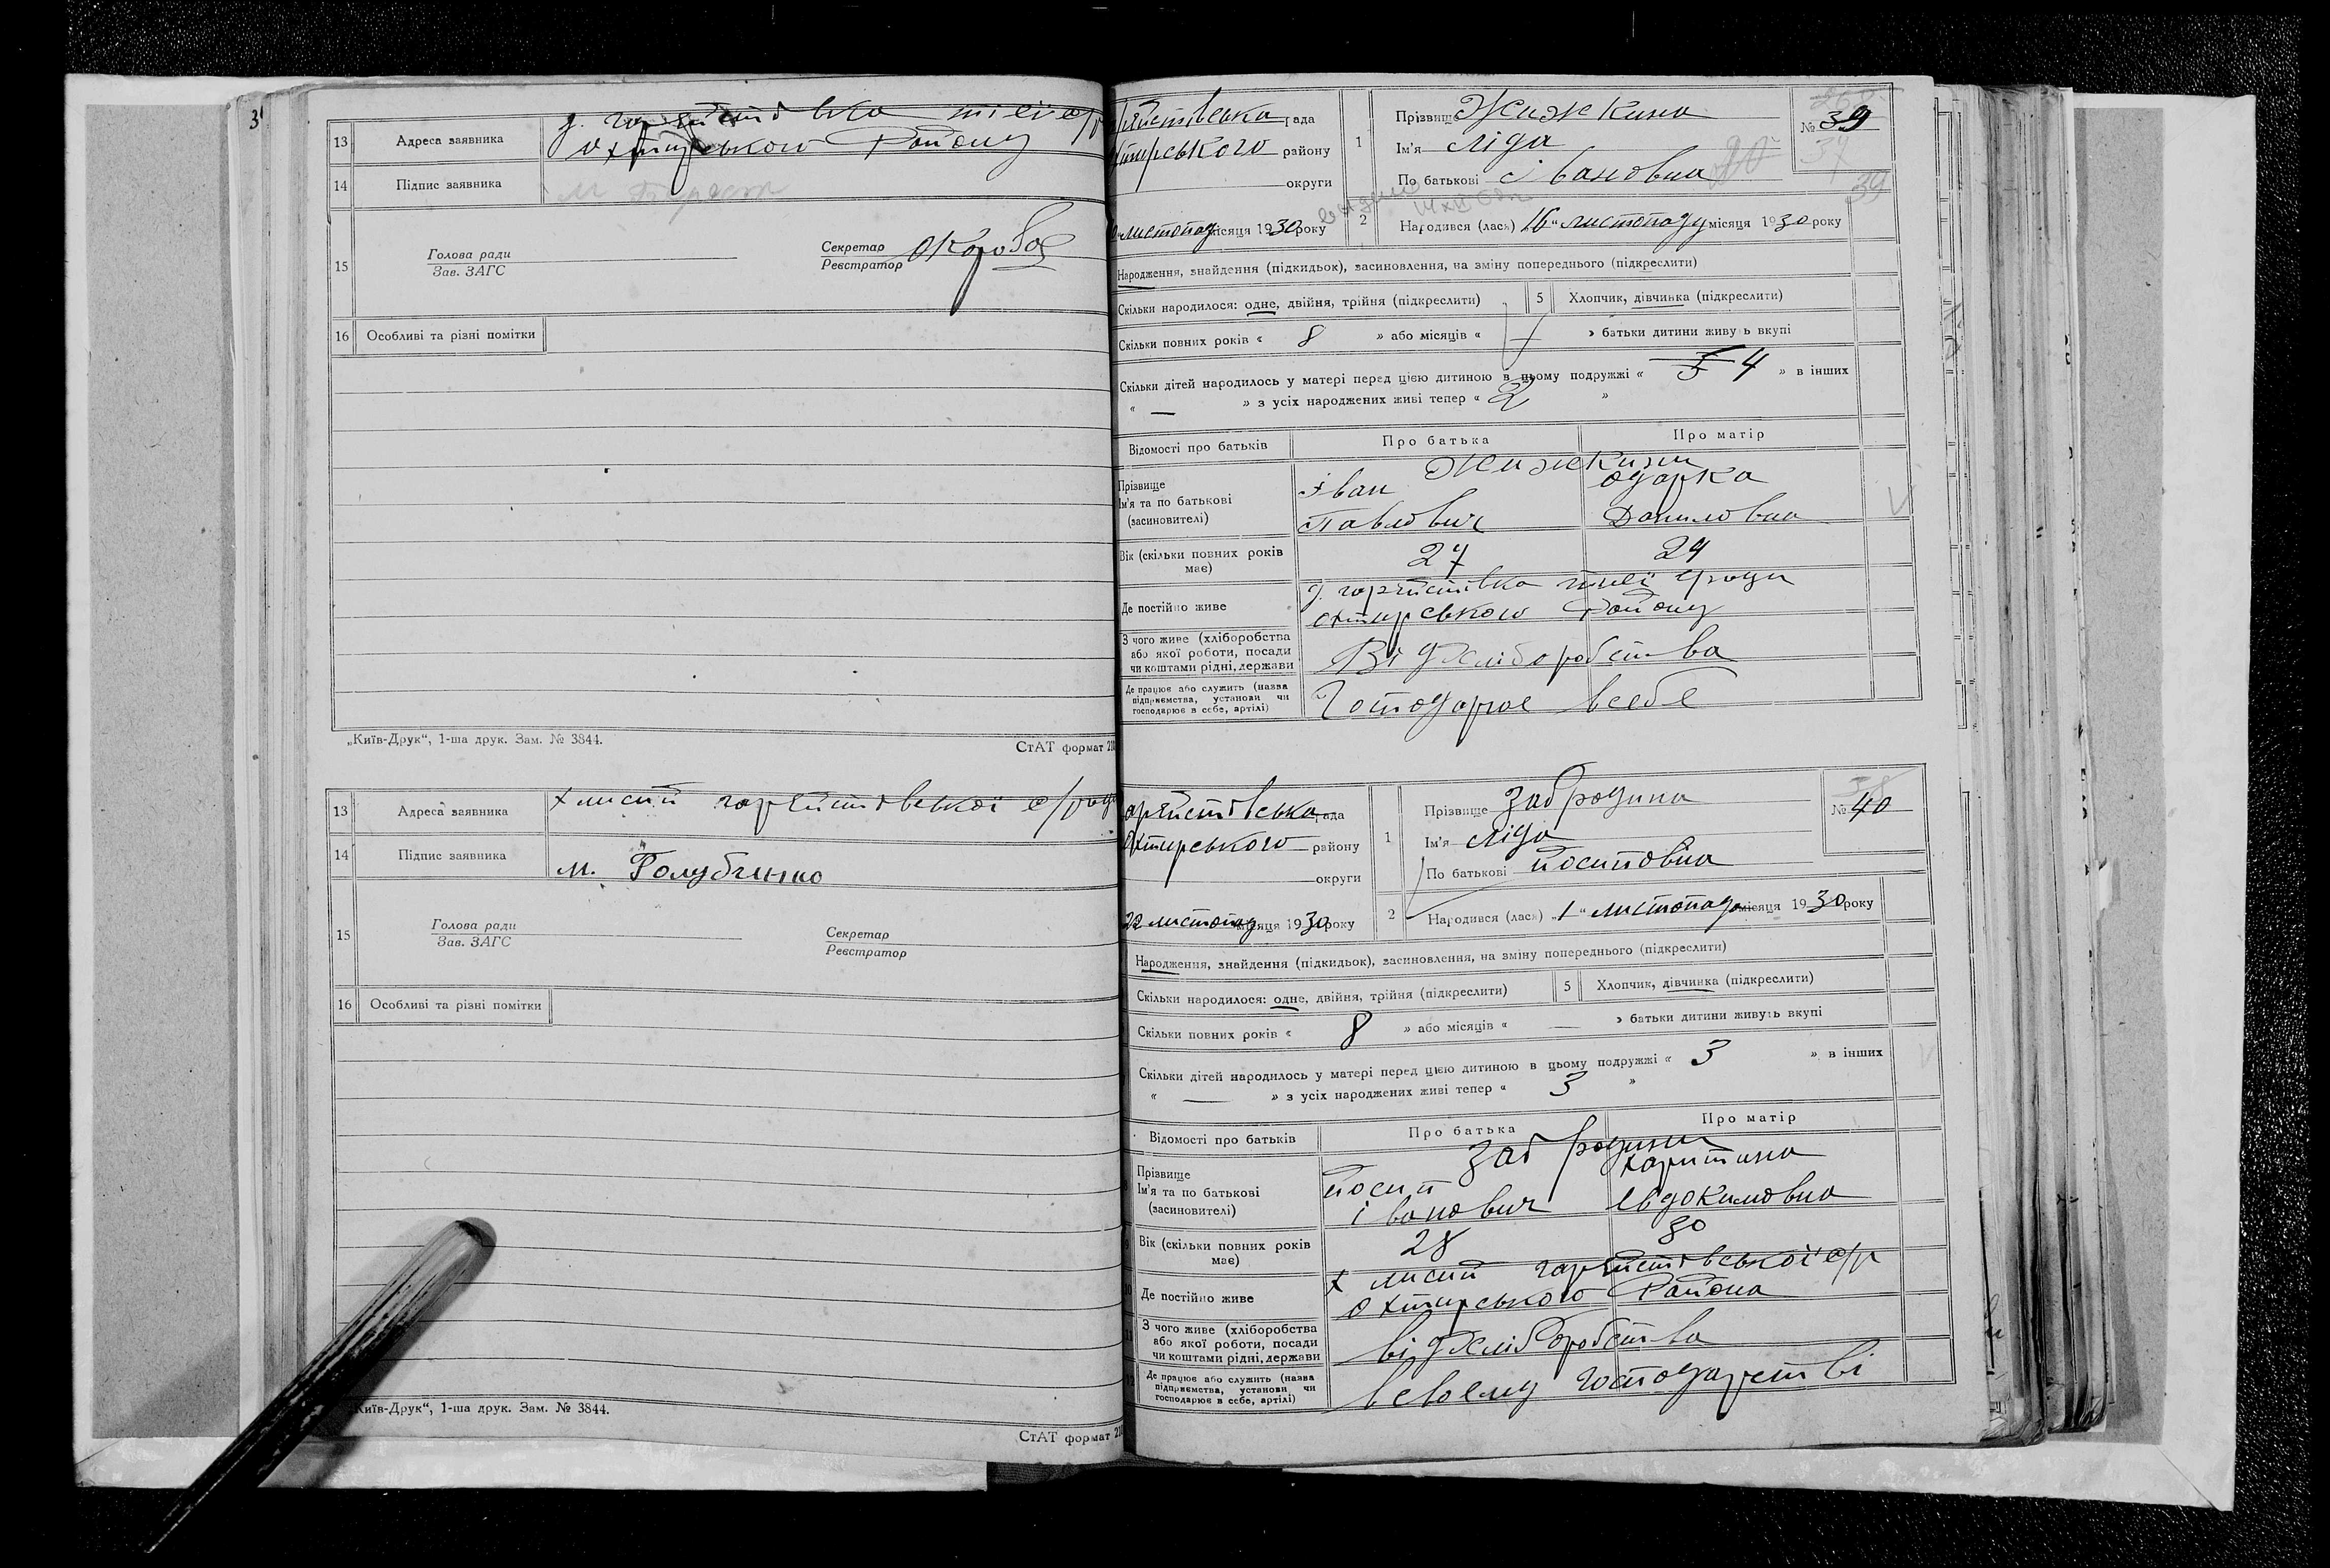 3
13 Адреса заявника
Охтирського Району
14 Підпис заявника
15 Голова ради
Зав. ЗАГС
Секретар
Реєстратор
16 Особливі та різні помітки
„Київ-Друк“, 1-ша друк. Зам. № 3844.
СтАТ формат
13 Адреса заявника х лисий
14 Підпис заявника м. Голубченко
15 Голова ради
Зав. ЗАГС
Секретар
Реєстратор
16 Особливі та різні помітки
Київ-Друк“, 1-ша друк. Зам. № 3844.
СтАТ формат
рада
району
округи
листопад місяця 1930 року
1 Прізвище Жижкина
Ім'я Ліда
По батькові івановна
№ 39
37
39
2 Народився (лась) 16 “ листопаду місяця 1930 року
Народження, знайдення (підкидьок), засиновлення, на зміну попереднього (підкреслити)
Скільки народилося: одне, двійня, трійня (підкреслити) 5 Хлопчик, дівчинка (підкреслити)
Скільки повних років « 8 » або місяців « — » батьки дитини живуть вкупі
Скільки дітей народилось у матері перед цією дитиною в цьому подружжі « 4 » в інших
« — » з усіх народжених живі тепер « 2 »
Відомості про батьків Про батька Про матір
Жижкини
Прізвище
Ім'я та по батькові
(засиновителі)
іван одарка
Павлович Даниловна
Вік (скільки повних років
має) 27 24
Де постійно живе
охтирського Району
З чого живе (хліборобства
або якої роботи, посади
чи коштами рідні, держави
Від хліборобства
Де працює або служить (назва
підприємства, установи чи
господарює в себе, артілі)
Господарює всебе
рада
Охтирського району
округи
22 листопад місяця 1930 року
1 Прізвище Забродина
Ім'я Ліда
По батькові йосиповна
38
№ 40
2 Народився (лась) „1“ листопада місяця 1930 року
Народження, знайдення (підкидьок), засиновлення, на зміну попереднього (підкреслити)
Скільки народилося: одне, двійня, трійня (підкреслити) 5 Хлопчик, дівчинка (підкреслити)
Скільки повних років « 8 » або місяців « — » батьки дитини живуть вкупі
Скільки дітей народилось у матері перед цією дитиною в цьому подружжі « 3 » в інших
« — » з усіх народжених живі тепер « 3 »
Відомості про батьків Про батька Про матір
Забродини
Прізвище
Ім'я та по батькові
(засиновителі)
йосип харитина
іванович євдокимовна
Вік (скільки повних років
має) 28 30
Де постійно живе
х лисий
охтирського Района
З чого живе (хліборобства
або якої роботи, посади
чи коштами рідні, держави
від хліборобства
Де працює або служить (назва
підприємства, установи чи
господарює в себе, артілі)
в своєму господарстві